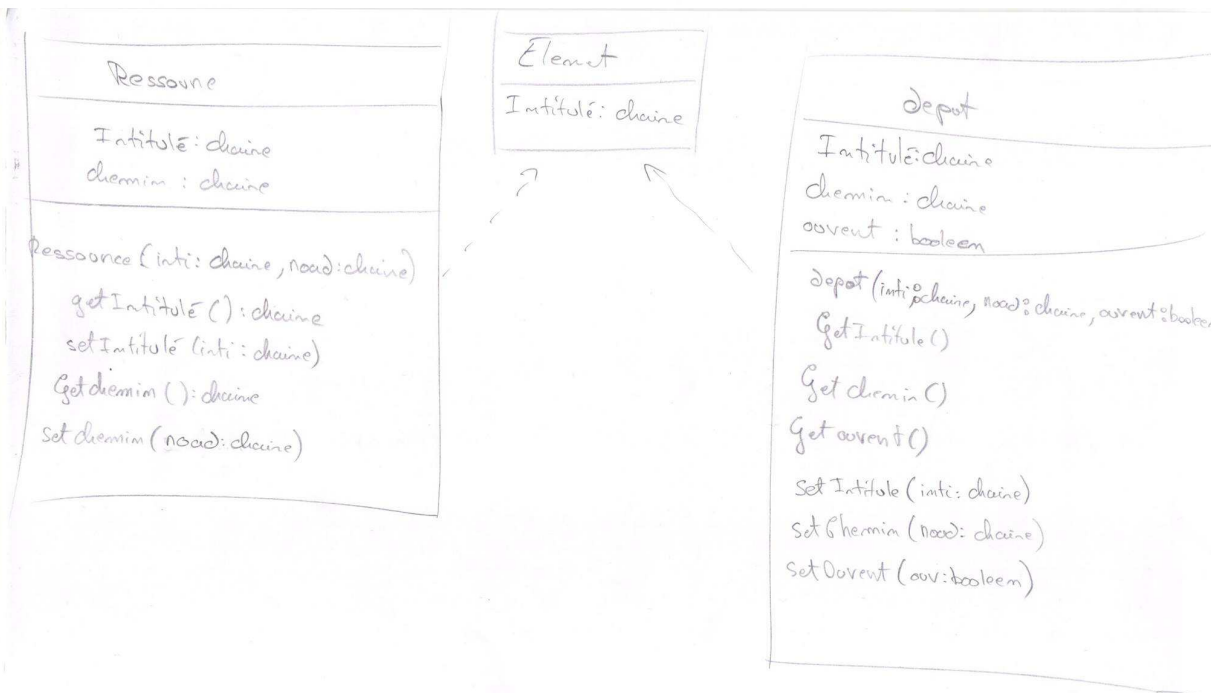 Ressource
Intitulé: chaine
chemin : chaine
Ressource (inti: chaine, road: chaine)
getIntitulé () : chaine
setIntitulé (inti : chaine)
Getchemin () : chaine
set chemin (road: chaine)
Élement
Intitulé: chaine
depot
Intitulé: chaine
chemin : chaine
ouvert : booleen
depot (inti: chaine, road: chaine, ouvert: booleen
GetIntitule ()
Get chemin ()
Get ouvert ()
set Intitule (inti: chaine)
set Chemin (road: chaine)
set Ouvert (ouv: booleen)